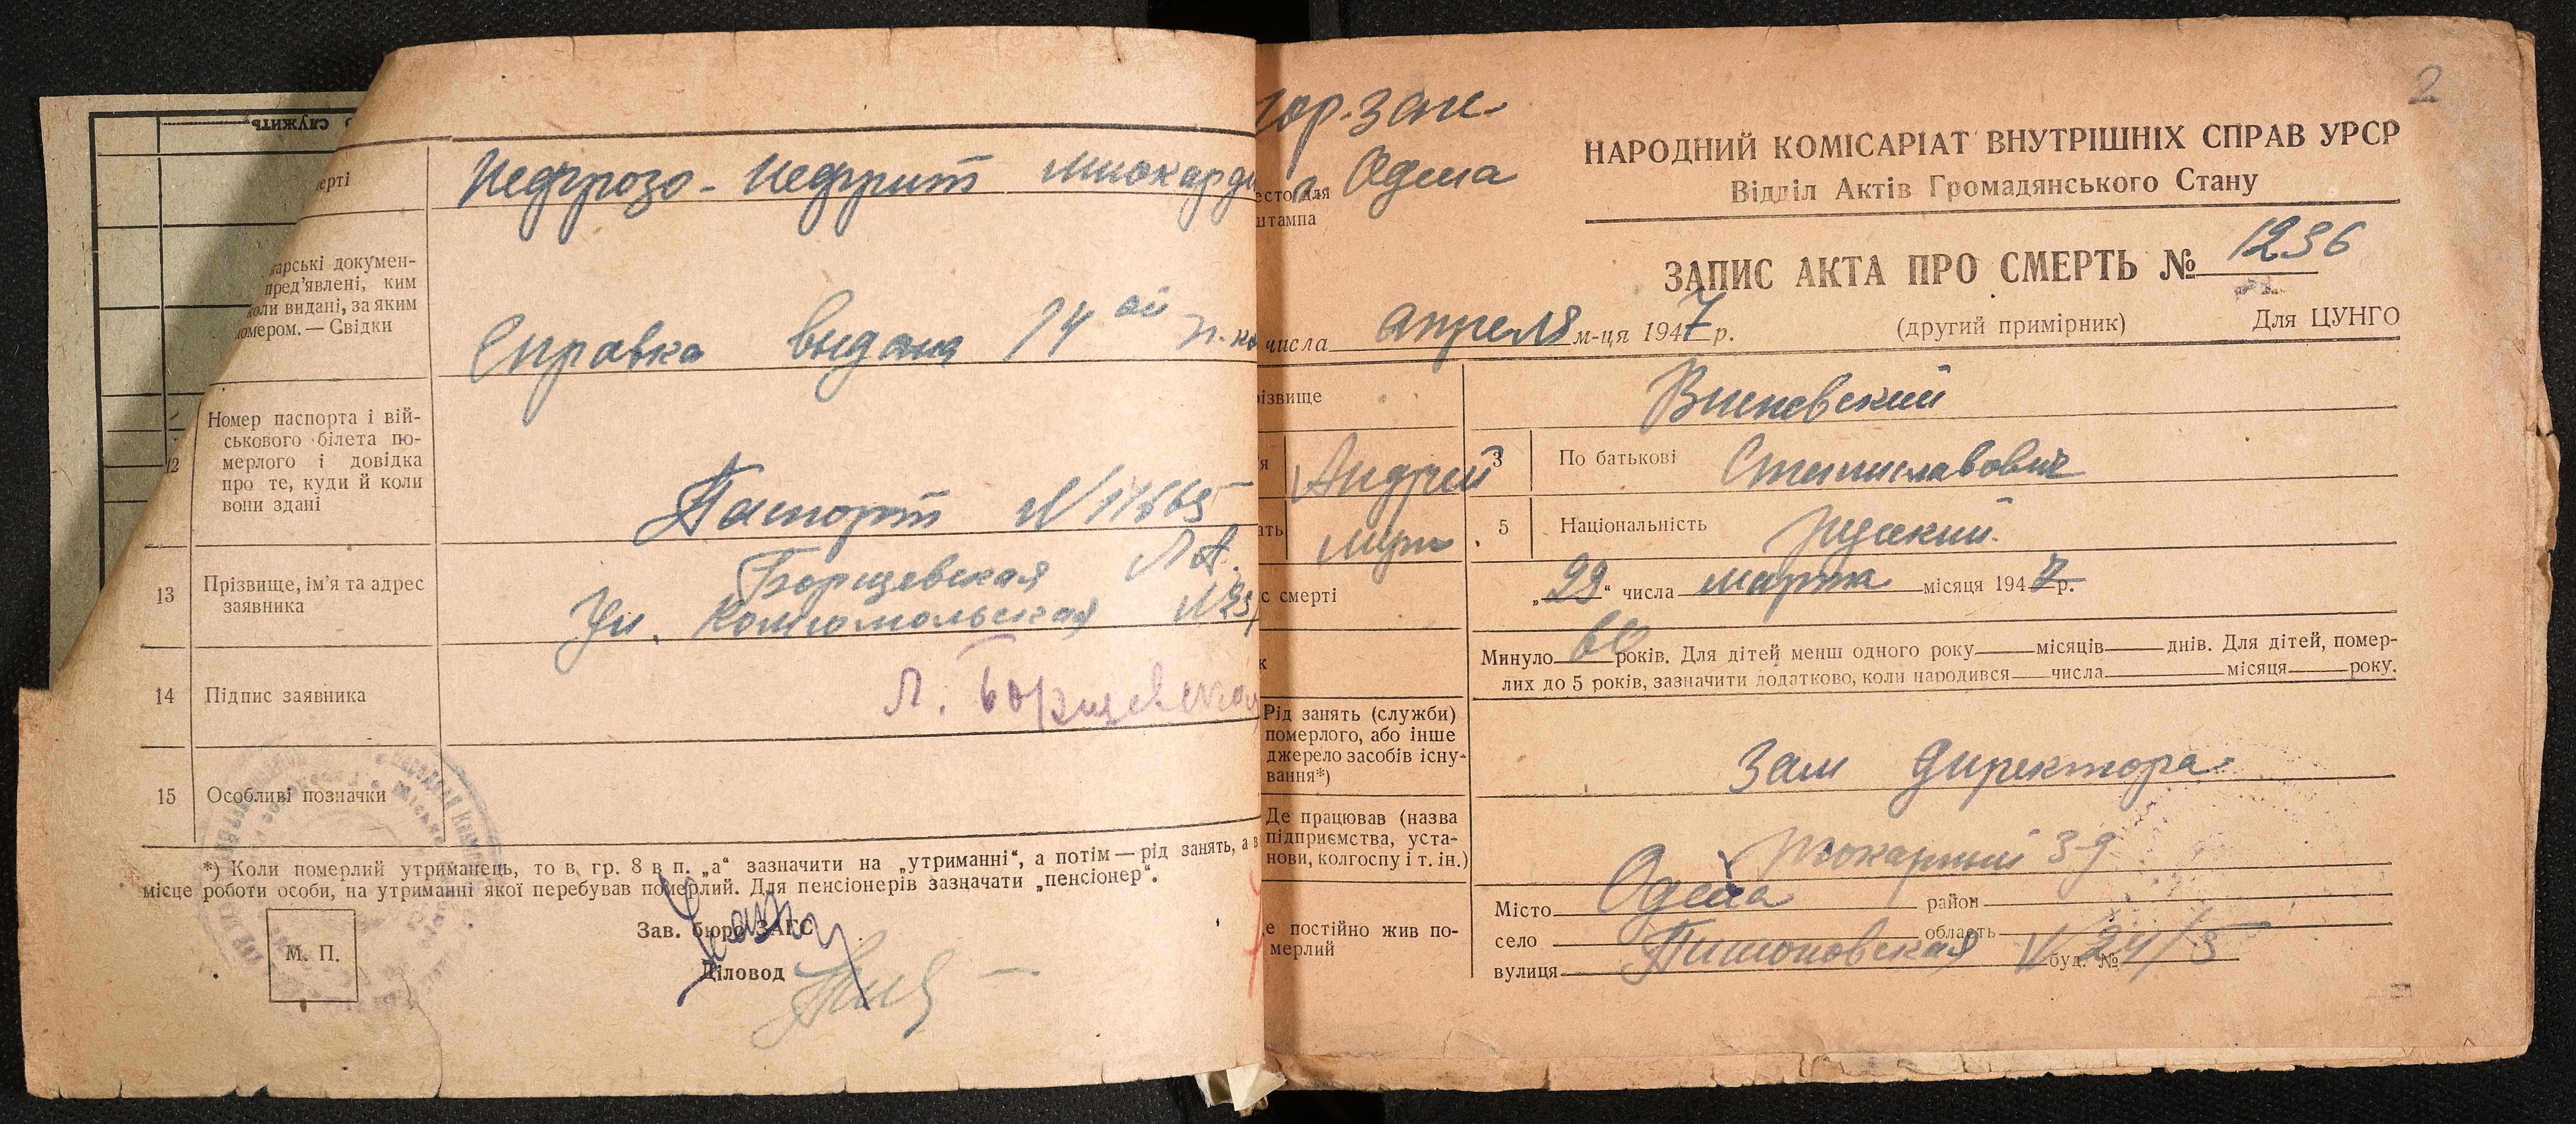 служить
ерті
Нефрозо-Нефрит Миокарди
карські докумен-
пред'явлені, ким
коли видані, за яким
номером. — Свідки
Справка выдана 14ой п.
12
Номер паспорта і вій-
ськового білета по-
мерлого і довідка
про те, куди й коли
вони здані
Паспорт №
13
Прізвище, ім'я та адрес
заявника
Борщевская Л А.
Ул. Комсомольская
14
Підпис заявника
Л. Борщевская
15
Особливі позначки
*) Коли померлий утриманець, то в гр. 8 в п. „а“ зазначити на „утриманні“, а потім — рід занять, а в
місце роботи особи, на утриманні якої перебував померлий. Для пенсіонерів зазначати „пенсіонер“.
М. П.
Зав. бюро ЗАГС
Діловод
2
гор. заг.
Одесса
есто для
штампа
НАРОДНИЙ КОМІСАРІАТ ВНУТРІШНІХ СПРАВ УРСР
Відділ Актів Громадянського Стану
ЗАПИС АКТА ПРО СМЕРТЬ № 1236
числа апреля м-ця 1947 р.
(другий примірник)
Для ЦУНГО
різвище
Висневский
я
Андрей
3
По батькові
Станиславович
ать
муж
5
Національність
русский.
с смерті
„29“ числа марта місяця 1947 р.
к
Минуло 60 років. Для дітей менш одного року місяців днів. Для дітей, помер-
лих до 5 років, зазначити додатково, коли народився числа місяця року.
Рід занять (служби)
померлого, або інше
джерело засобів існу-
вання*)
Зам директора
Де працював (назва
підприємства, уста-
нови, колгоспу і т. ін.)
Токарный з-д
е постійно жив по-
мерлий
Місто Одесса район
село область
вулиця буд. № 24/5